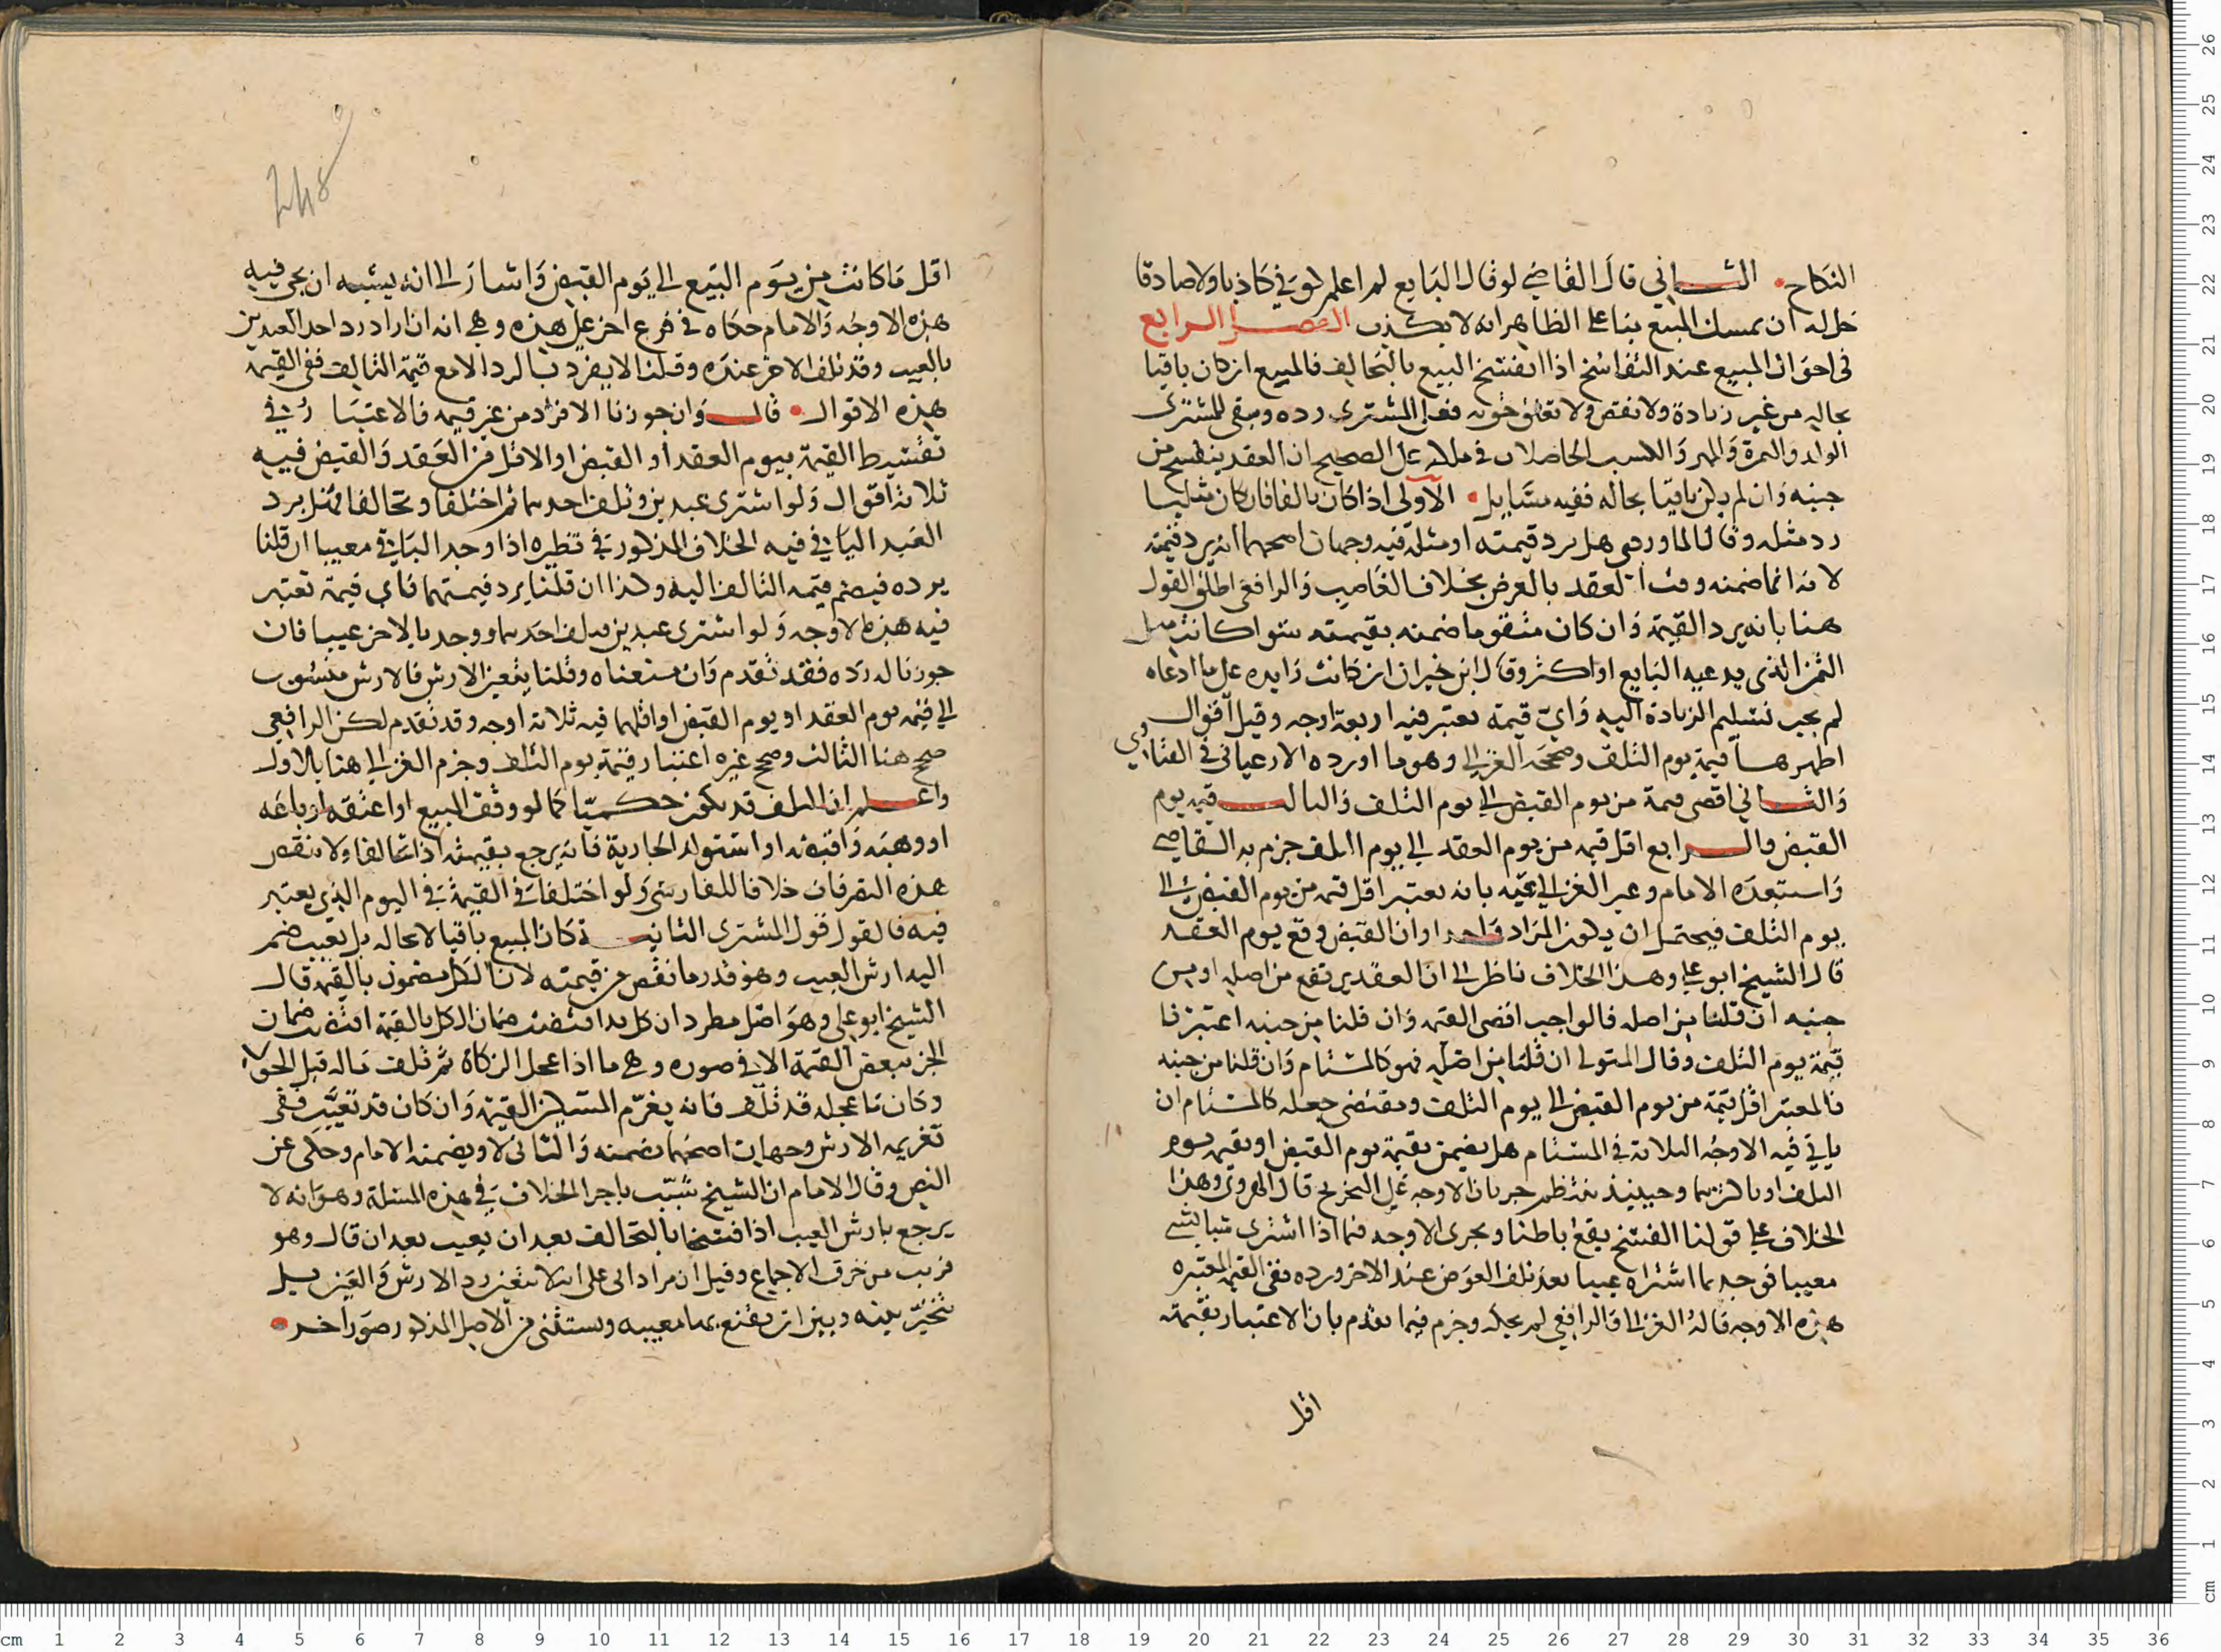 النكاح الثاني قال القاضي لو قال البايع لم اعلم كوني كاذبا ولا صادقا
حل له ان يمسك المبيع بنا على الظاهر انه لا يكذب الفصل الرابع
في احوال المبيع عند التفاسخ اذا انفسخ البيع بالتحالف فالمبيع ان كان باقيا
بحاله من غير زيادة ولا نقص ولا تعلق حق به فعلى المشتري رده ويبقى للمشتري
الولد والثمرة والمهر والكسب الحاصلات في ملكه على الصحيح ان العقد ينفسخ من
حينه وان لم يكن باقيا بحاله ففيه مسايل الاولى اذا كان تالفا فان كان مثليا
رد مثله وقال الماوردي هل يرد قيمته او مثله فيه وجهان اصحهما انه يرد قيمته
لانه انما ضمنه وقت العقد بالعوض بخلاف الغاصب والرافعي اطلق القول
هنا بانه يرد القيمة وان كان متقوما ضمنه بقيمته سوا كانت مثل
الثمن الذي يدعيه البايع او اكثر وقال ابن خيران ان كانت زايده على ما ادعاه
لم يجب تسليم الزيادة اليه واي قيمة تعتبر فيه اربعة اوجه وقيل اقوال
اظهرها قيمة يوم التلف وصححه الغزالي وهو ما اورده الارغياني في الفتاوي
والثاني اقصى قيمة من يوم القبض الى يوم التلف والثالث قيمة يوم
القبض والرابع اقل قيمة من يوم العقد الى يوم التلف جزم به القاضي
واستبعده الامام وعبر الغزالي عنه بانه يعتبر اقل قيمة من يوم القبض الى
يوم التلف فيحتمل ان يكون المراد واحدا وان القبض وقع يوم العقد
قال الشيخ ابو علي وهذا الخلاف ناظر الى ان العقد يرتفع من اصله او من
حينه ان قلنا من اصله فالواجب اقصى القيمة وان قلنا من حينه اعتبرنا
قيمة يوم التلف وقال المتولي ان قلنا من اصله فهو كالمستام وان قلنا من حينه
فالمعتبر اقل قيمة من يوم القبض الى يوم التلف ومقتضى جعله كالمستام ان
ياتي فيه الاوجه الثلاثة في المستام هل يضمن بقيمة يوم القبض او بقيمة يوم
التلف او باكثرهما وحينيذ ينتظم جريان الاوجه على التخريج قال الهروي وهذا
الخلاف على قولنا الفسخ يقع باطنا ويجرى الاوجه فيما اذا اشترى شيا بشي
معيبا فوجد بما اشتراه عيبا بعد تلف العوض عند الاخر ورده ففي القيمة المعتبره
هذه الاوجه قاله الغزالي والرافعي لم يحكه وجزم فيما تقدم بان الاعتبار بقيمته
اقل
اقل ما كانت من يوم البيع الى يوم القبض واشار الى انه يشبه ان يجي فيه
هذه الاوجه والامام حكاه في فرع اخر على هذه وهي انه ان اراد رد احد العبدين
بالعيب وقد تلف الاخر عنده وقلنا لا يفرد بالرد الا مع قيمة التالف ففي القيمة
هذه الاقوال قال وان جوزنا الافراد من غير قيمة فالاعتبار في
تقسيط القيمة بيوم العقد او القبض او الاقل من العقد والقبض فيه
ثلاثة اقوال ولو اشترى عبدين وتلف احدهما ثم اختلفا وتحالفا فهل يرد
العبد الباقي فيه الخلاف المذكور في نظيره اذا وجد الباقي معيبا ان قلنا
يرده فيضم قيمة التالف اليه وكذا ان قلنا يرد قيمتهما فاي قيمة تعتبر
فيه هذه الاوجه ولو اشترى عبدين وتلف احدهما ووجد بالاخر عيبا فان
جوزنا له رده فقد تقدم وان منعناه وقلنا يتعين الارش فالارش منسوب
الى قيمة يوم العقد او يوم القبض او اقلهما فيه ثلاثة اوجه وقد تقدم لكن الرافعي
صحح هنا الثالث وصحح غيره اعتبار قيمة يوم التلف وجزم الغزالي هنا بالاول
واعلم ان التلف قد يكون حكميا كما لو وقف المبيع او اعتقه او باعه
او وهبه واقبضه او استولد الجارية فانه يرجع بقيمته اذا تحالفا ولا تنقض
هذه التصرفات خلافا للفارسي ولو اختلفا في القيمة في اليوم الذي يعتبر
فيه فالقول قول المشتري الثانية ان كان المبيع باقيا لا بحاله بل تعيب ضم
اليه ارش العيب وهو قدر ما نقص من قيمته لان الكل مضمون بالقيمة قال
الشيخ ابو علي وهو اصل مطرد ان كل يد اقتضت ضمان الكل بالقيمة اقتضت ضمان
الجز ببعض القيمة الا في صوره وهي ما اذا عجل الزكاة ثم تلف ماله قبل الحول
وكان ما عجله قد تلف فانه يغرم المسكين القيمة وان كان قد تعيب ففي
تغريمه الارش وجهان اصحهما يضمنه والثاني لا ويضمنه الامام وحكى عن
النص وقال الامام ان الشيخ شبب باجرا الخلاف في هذه المسئلة وهو انه لا
يرجع بارش العيب اذا فسخا بالتحالف بعد ان يعيب بعد ان قال وهو
قريب من خرق الاجماع وقيل ان مراد ابي علي انه لا يتعين رد الارش والعين بل
يتخير بينه وبين ان يقنع بها معيبه ويستثنى من الاصل المذكور صور اخر